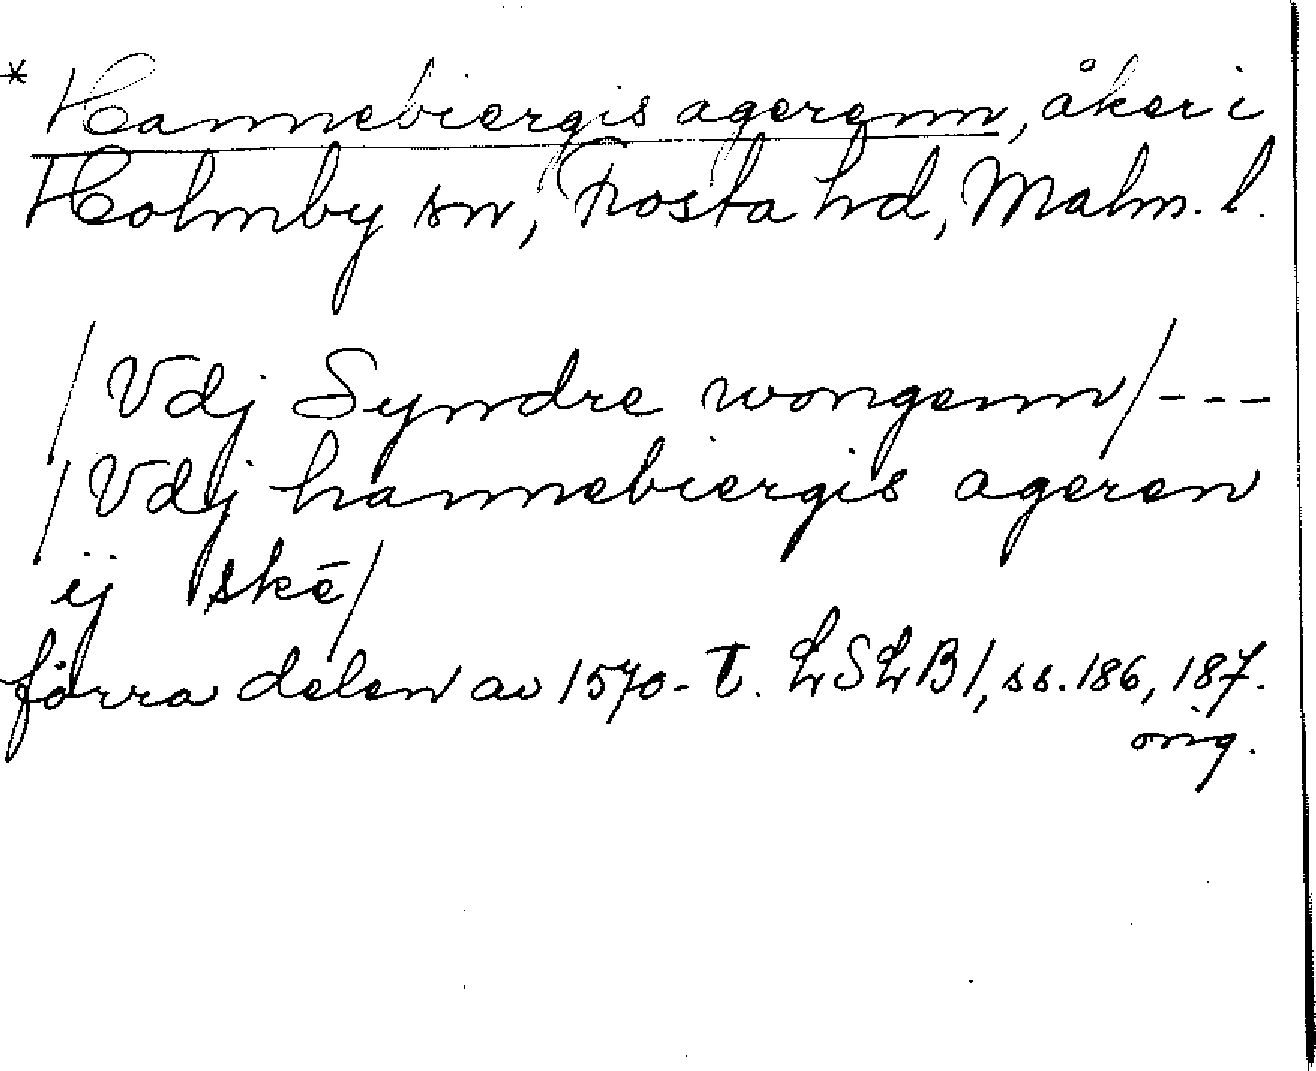 * Hannebiergis agerenn, åker i
Holmby sn, Frosta hd, Malm. l.
/Vdj Syndre wongenn/---
/Vdj hannebiergis ageren
ij skē/
förra delen av 1570-t. LSLB1, ss. 186, 187.
orig.